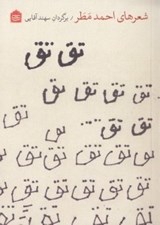 شعرهای احمد مَطَر / برگردان سهند آقایی
تق تق
تق تق تق
تق تق تق تق
تق تق تق
تق تق تق تق
تق تق تق تق
تق تق تق تق
تق تق تق تق